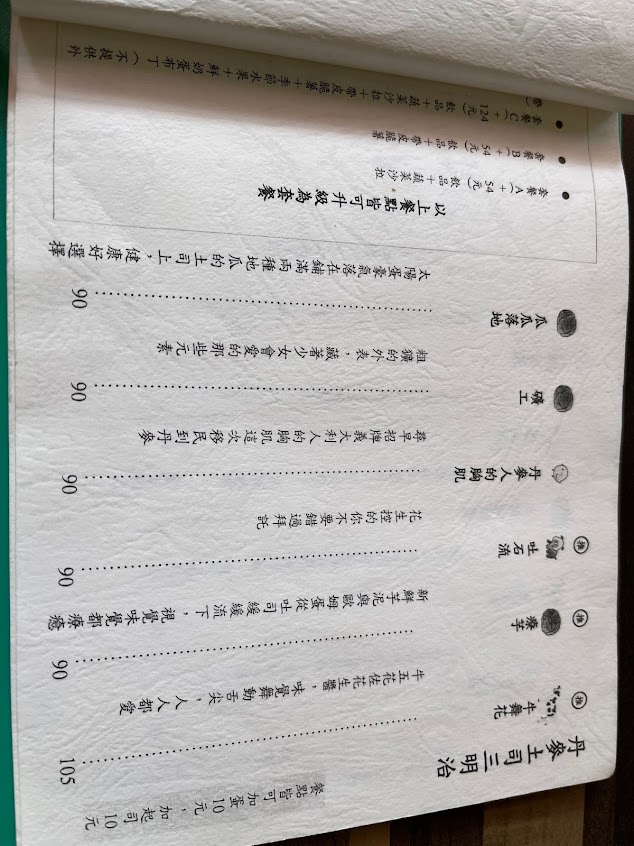 丹麥土司三明治
餐點皆可加蛋10元，加起司10元
推 牛舞花
牛五花佐花生醬，味覺舞動舌尖，人人都愛
105
推 療芋
新鮮芋泥與歐姆蛋從吐司緩緩流下，視覺味覺都療癒
90
推 吐石流
花生控的你不要錯過拜託
90
丹麥人的胸肌
尋早招牌義大利人的胸肌這次移民到丹麥
90
礦工
粗獷的外表，藏著少女會愛的那些元素
90
瓜瓜落地
太陽蛋豪氣落在鋪滿兩種地瓜的土司上，健康好選擇
90
以上餐點皆可升級為套餐
• 套餐A（+54元）飲品+蔬菜沙拉
• 套餐B（+54元）飲品+帶皮脆薯
• 套餐C（+124元）飲品+蔬菜沙拉+帶皮脆薯+季節水果+鮮奶蛋布丁（不提供外
帶）